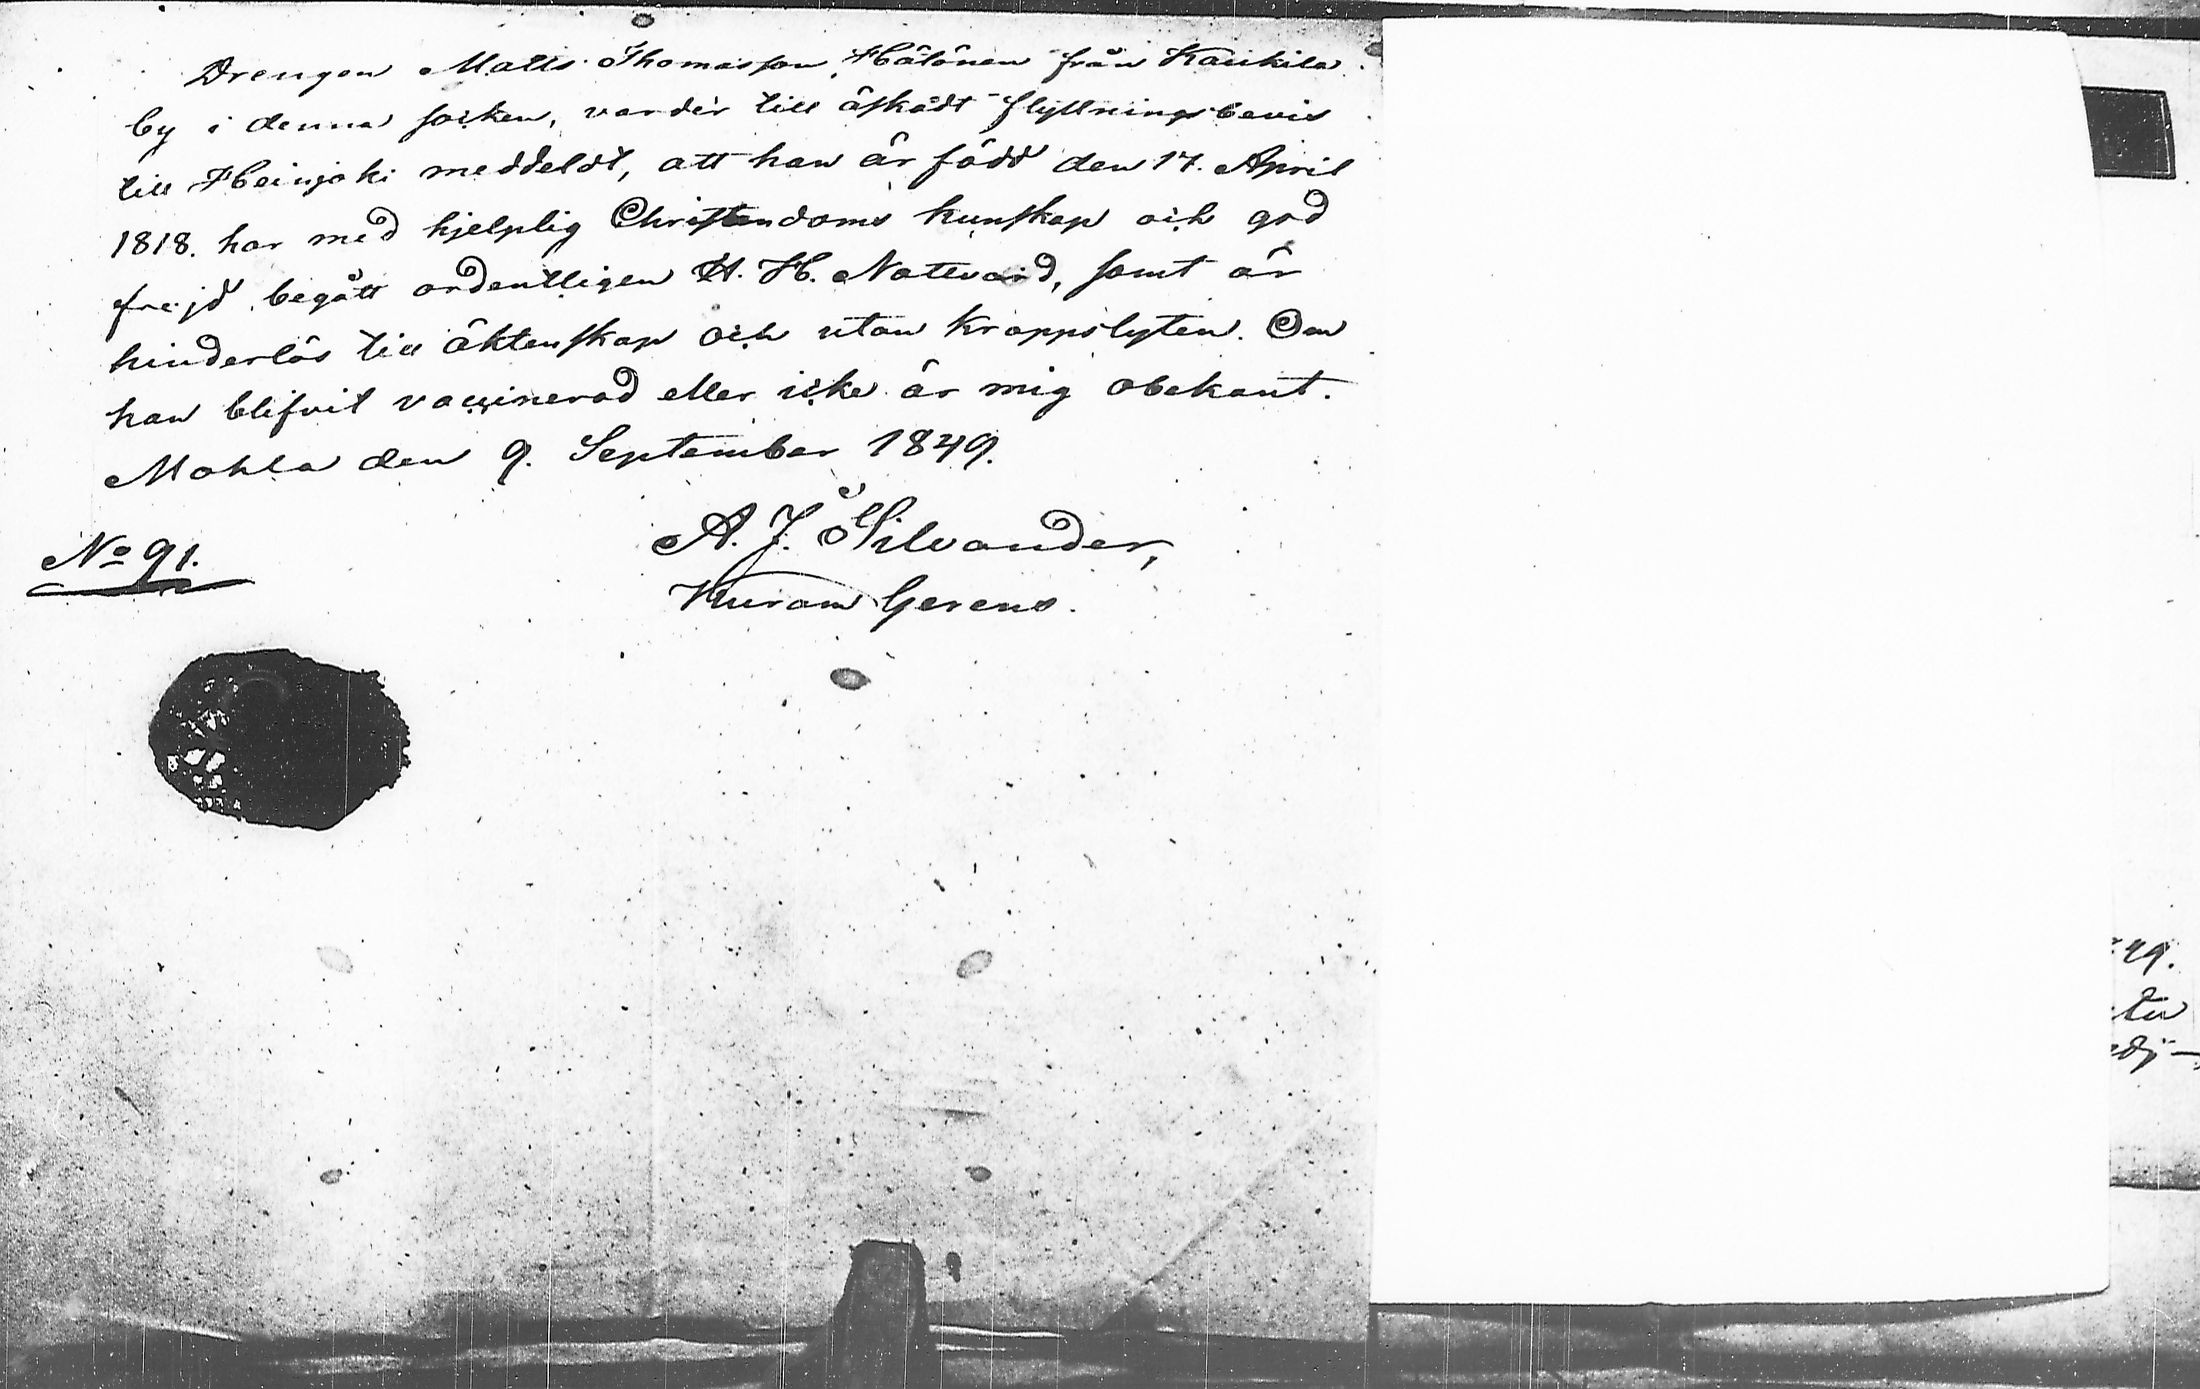 Drengen Matts Thomasson Hälönen från Kaukila
by i denna socken, varder till äskadt flyttningsbevis
till Heinjoki meddeldt, att han är född den 17. April
1818. har med hjelplig Christendoms kunskap och god
frejd begått ordentligen H. H. Nattvard, samt är
hinderlös till äktenskap och utan kroppslyten. Om
han blifvit vaccinerad eller icke är mig obekant.
Mohla den 9. September 1849.
A. J. Silvander,
No 91.
Kuram Gerens.
49.